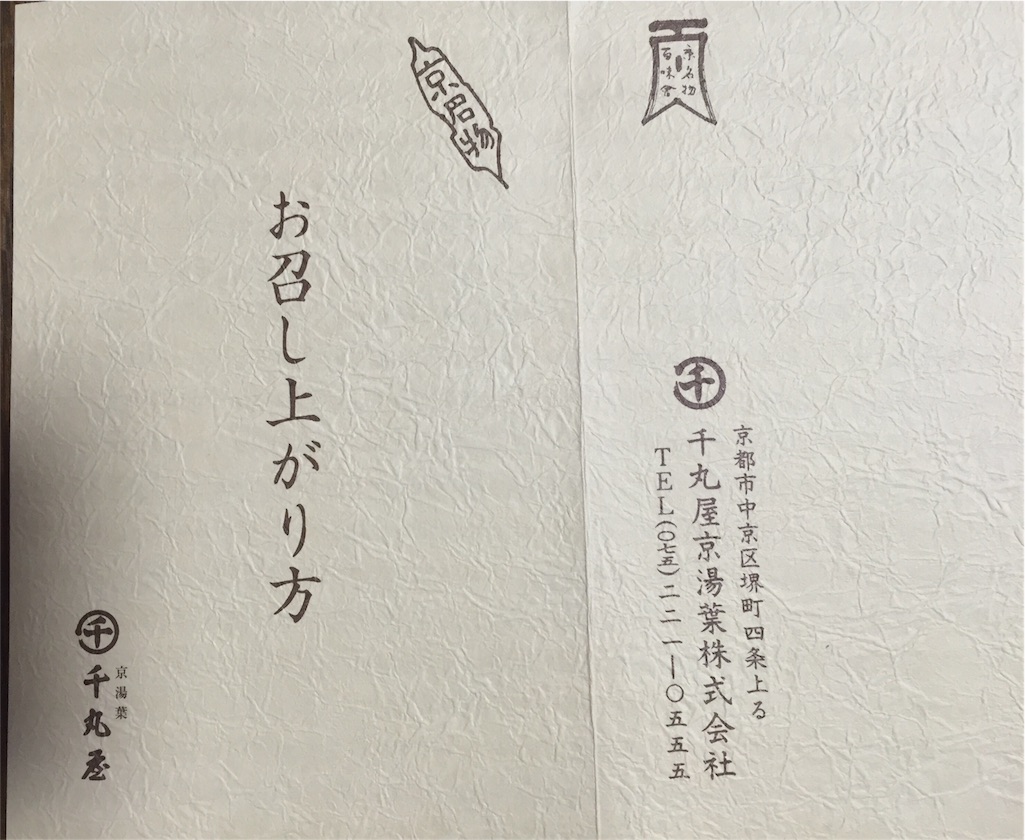 京名物
百味會
千
京都市中京区堺町四条上る
千丸屋京湯葉株式会社
TEL(〇七五)二二一―〇五五五
京名物
お召し上がり方
千
京湯葉
千丸屋